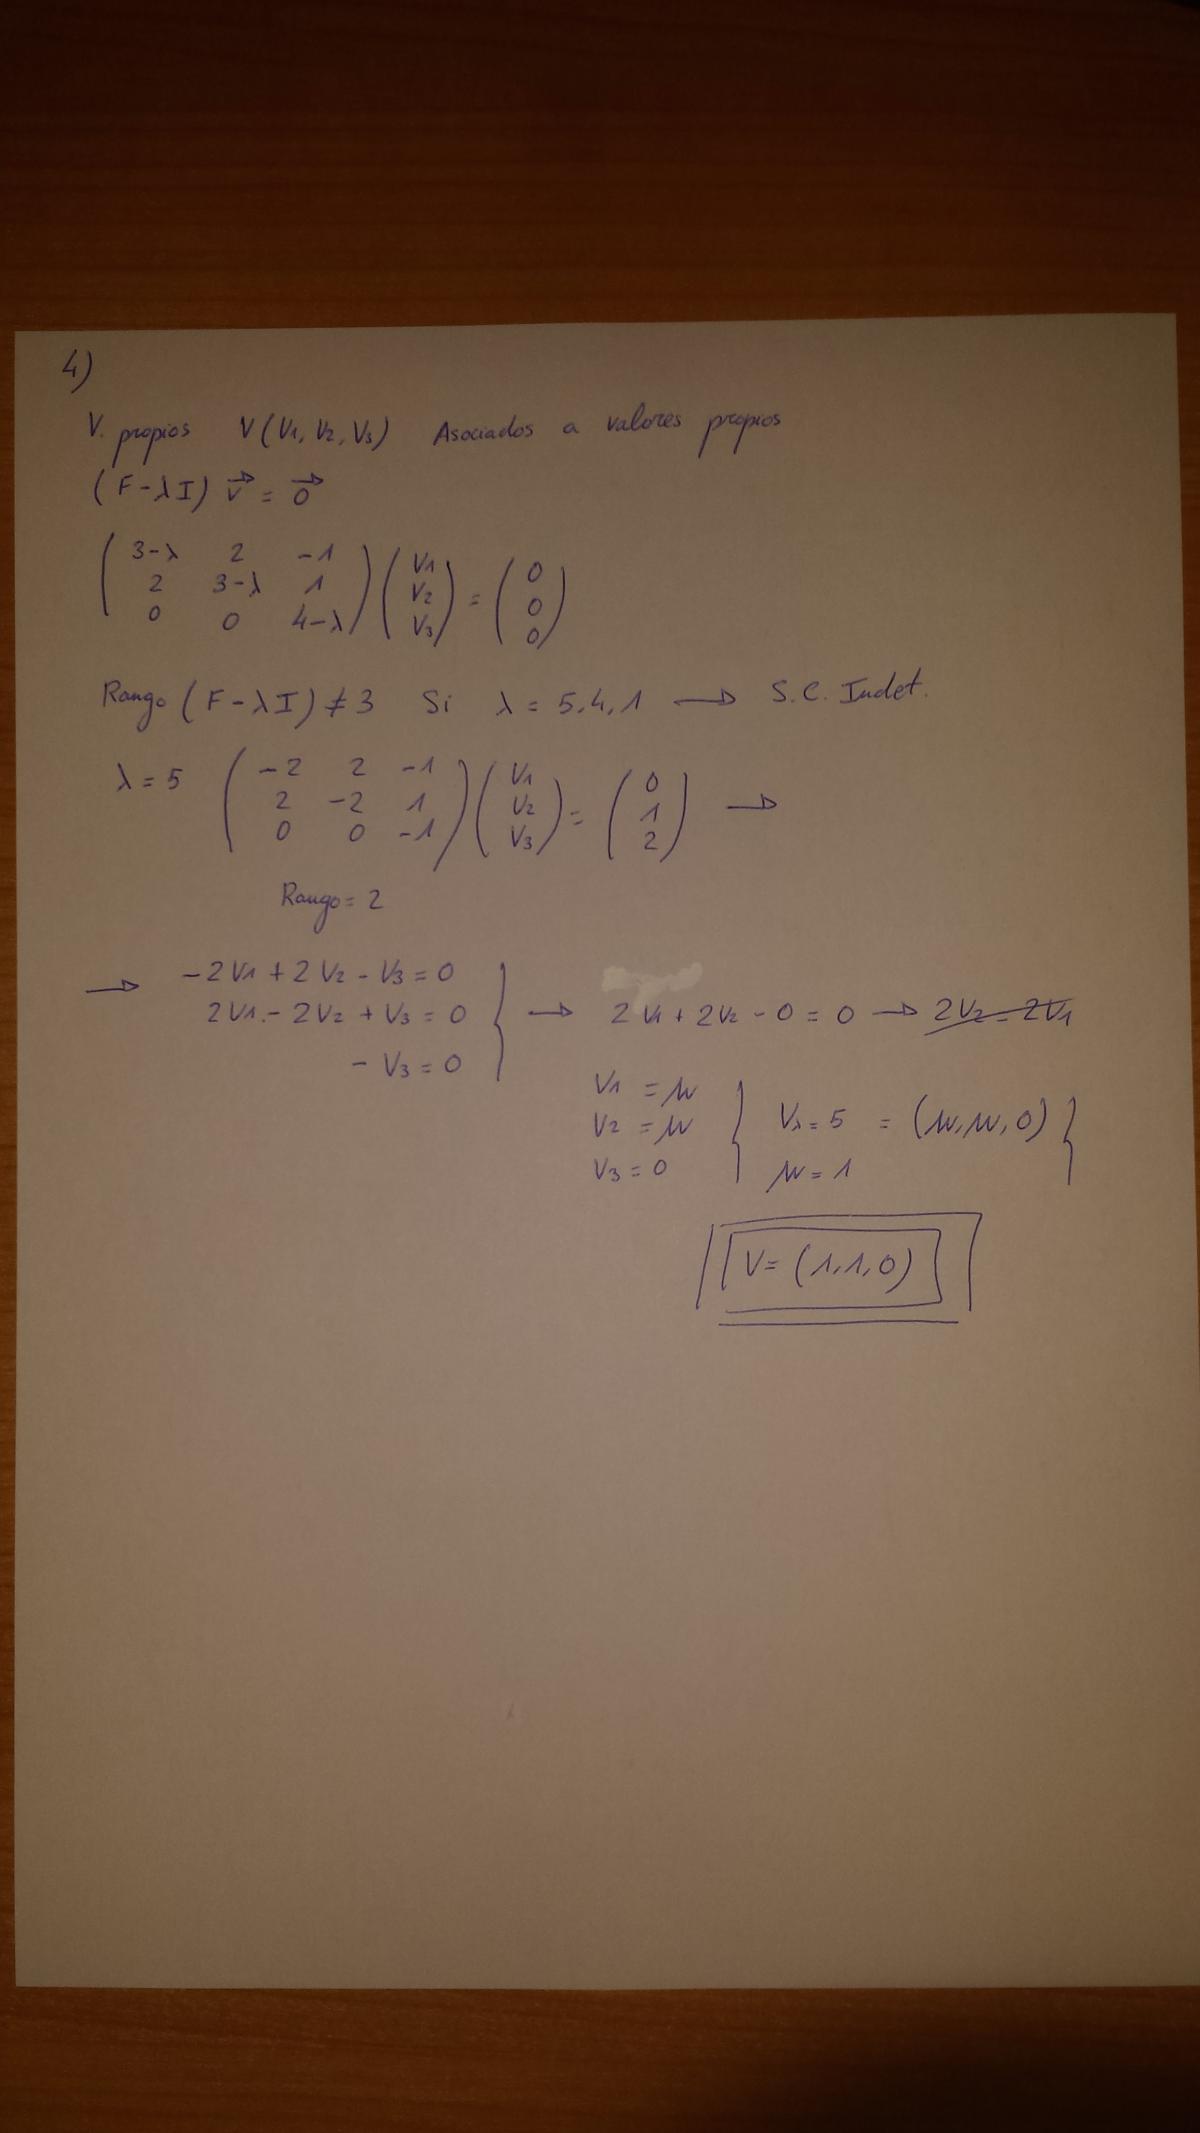 4)
V. propios V(V1, V2, V3) Asociados a valores propios
(F-λI) v⃗ = 0⃗
( 3-λ 2 -1 ) ( V1 ) = ( 0 )
( 2 3-λ 1 ) ( V2 ) = ( 0 )
( 0 0 4-λ ) ( V3 ) = ( 0 )
Rango (F-λI) ≠ 3 Si λ = 5,4,1 → S.C. Indet.
λ = 5 ( -2 2 -1 ) ( V1 ) = ( 0 ) →
( 2 -2 1 ) ( V2 ) = ( 1 )
( 0 0 -1 ) ( V3 ) = ( 2 )
Rango = 2
→ -2V1 + 2V2 - V3 = 0
2V1 - 2V2 + V3 = 0 } → 2V1 + 2V2 - 0 = 0 → 2V2 = 2V1
- V3 = 0
V1 = μ
V2 = μ } Vλ=5 = (μ,μ,0) }
V3 = 0 μ = 1
V = (1,1,0)